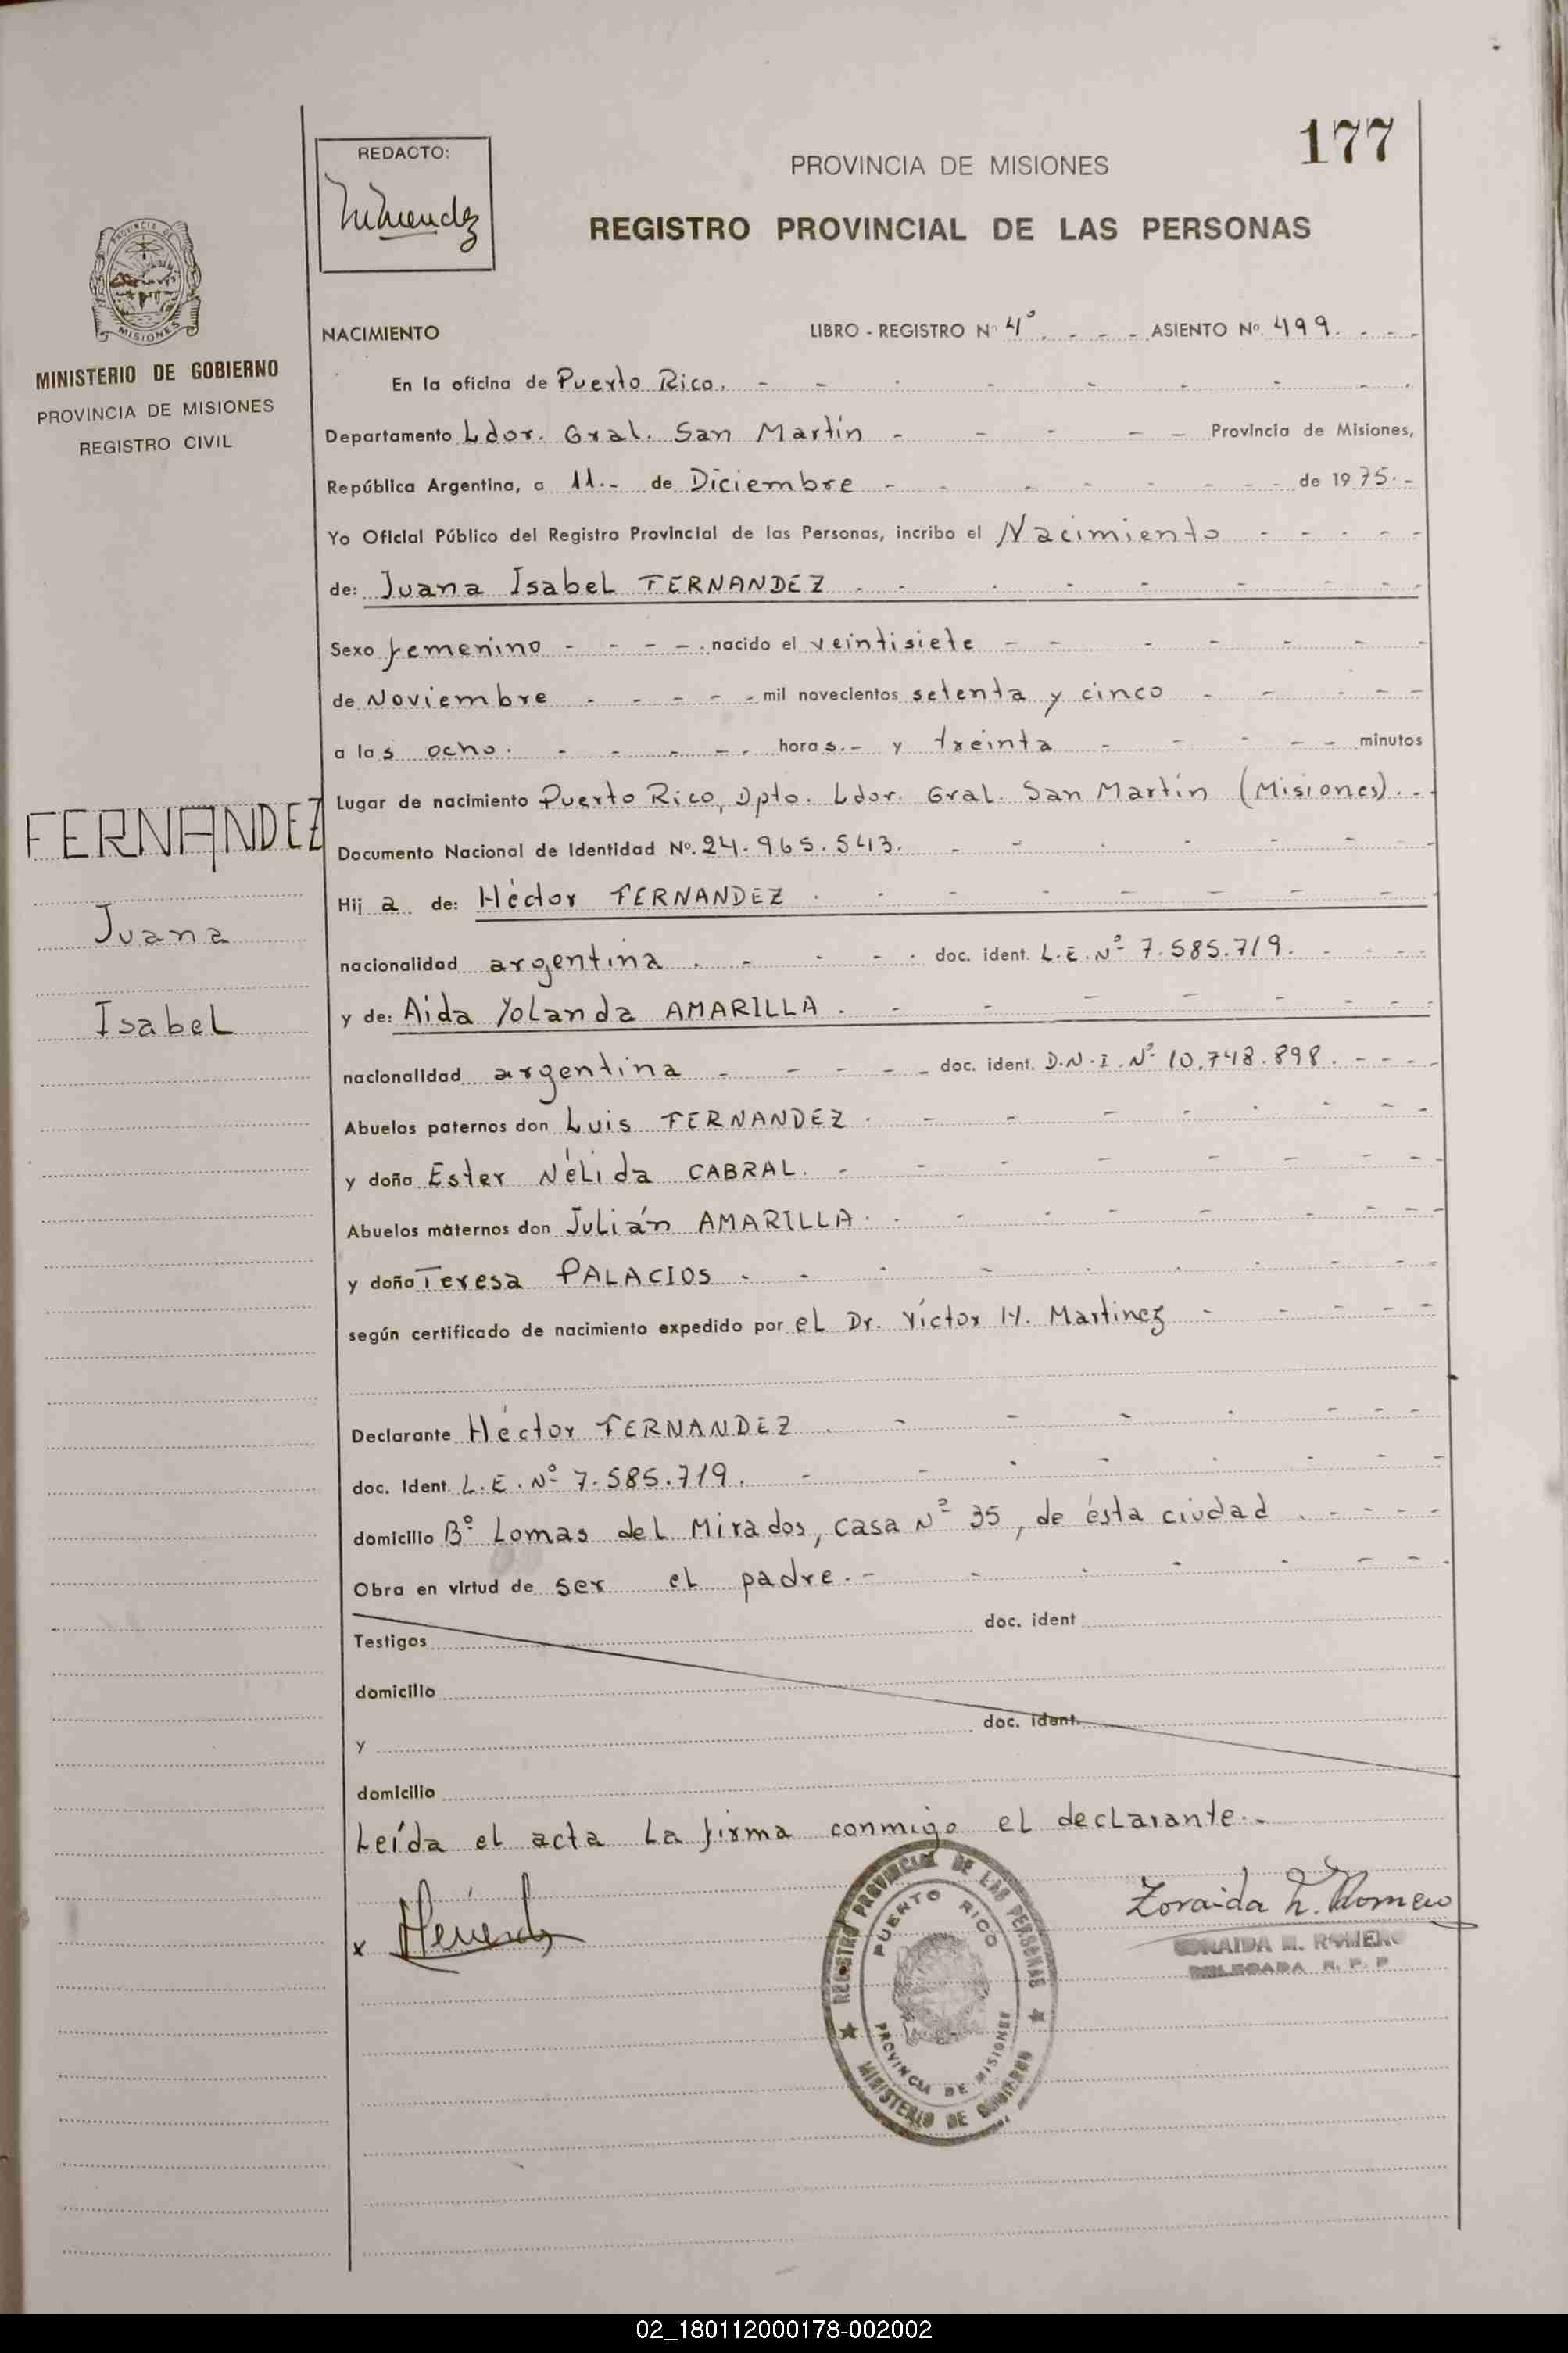 177
REDACTO:
PROVINCIA DE MISIONES
REGISTRO PROVINCIAL DE LAS PERSONAS
PROVINCIA DE
MISIONES
MINISTERIO DE GOBIERNO
PROVINCIA DE MISIONES
REGISTRO CIVIL
NACIMIENTO LIBRO - REGISTRO Nº 4º. - - - ASIENTO Nº 499. - - -
En la oficina de Puerto Rico. - - - - - - - -
Departamento Ldor. Gral. San Martín - - - - - Provincia de Misiones,
República Argentina, a 11.- de Diciembre - - - - - - - de 1975.-
Yo Oficial Público del Registro Provincial de las Personas, incribo el Nacimiento - - - - -
de: Juana Isabel FERNANDEZ - - - - - - - -
Sexo femenino - - - - nacido el veintisiete - - - - - - -
de Noviembre - - - - - mil novecientos setenta y cinco - - - - -
a las ocho. - - - - - horas.- y treinta - - - - - minutos
Lugar de nacimiento Puerto Rico, Dpto. Ldor. Gral. San Martín (Misiones). - -
Documento Nacional de Identidad Nº. 24.965.543. - - - - - - -
Hija de: Héctor FERNANDEZ. - - - - - - -
nacionalidad argentina. - - - - doc. ident. L.E. Nº 7.585.719. - - - -
y de: Aida Yolanda AMARILLA. - - - - - - - -
nacionalidad argentina - - - - - doc. ident. D.N.I. Nº 10.748.898. - - - -
Abuelos paternos don Luis FERNANDEZ. - - - - - - - -
y doña Ester Nélida CABRAL. - - - - - - - -
Abuelos maternos don Julián AMARILLA. - - - - - - - -
y doña Teresa PALACIOS - - - - - - - - -
según certificado de nacimiento expedido por el Dr. Víctor H. Martinez - - - - -
Declarante Héctor FERNANDEZ. - - - - - - - -
doc. Ident. L.E. Nº 7.585.719. - - - - - - - -
domicilio Bº Lomas del Mirados, casa Nº 35, de ésta ciudad. - - - -
Obra en virtud de ser el padre.- - - - - - -
Testigos doc. ident
domicilio
y doc. ident.
domicilio
Leída el acta la firma conmigo el declarante.-
x
Zoraida M. Romero
ZORAIDA M. ROMERO
DELEGADA R. P. P.
REGISTRO PROVINCIAL DE LAS PERSONAS
PUERTO RICO
PROVINCIA DE MISIONES
MINISTERIO DE GOBIERNO
FERNANDEZ
Juana
Isabel
02_180112000178-002002